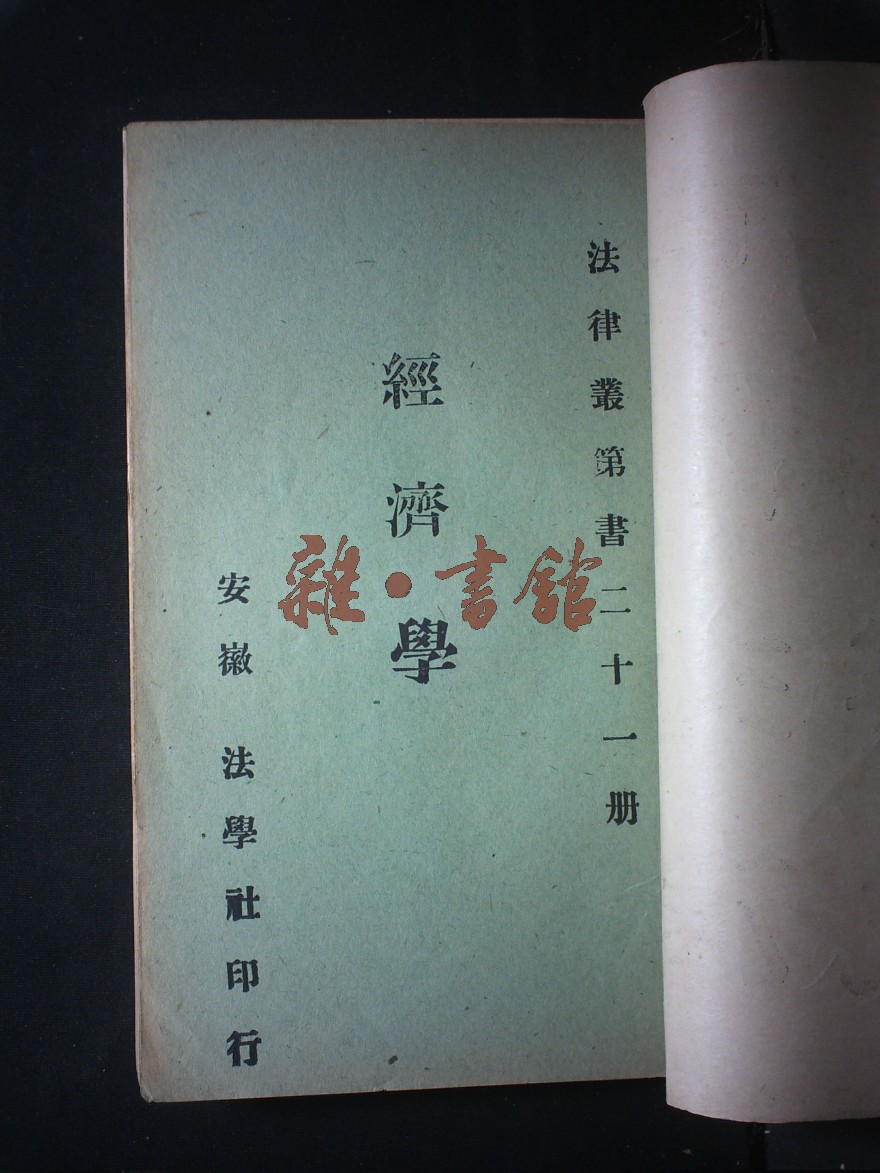 法律叢第書二十一册
經濟學
安徽 法學社印行
雜·書館